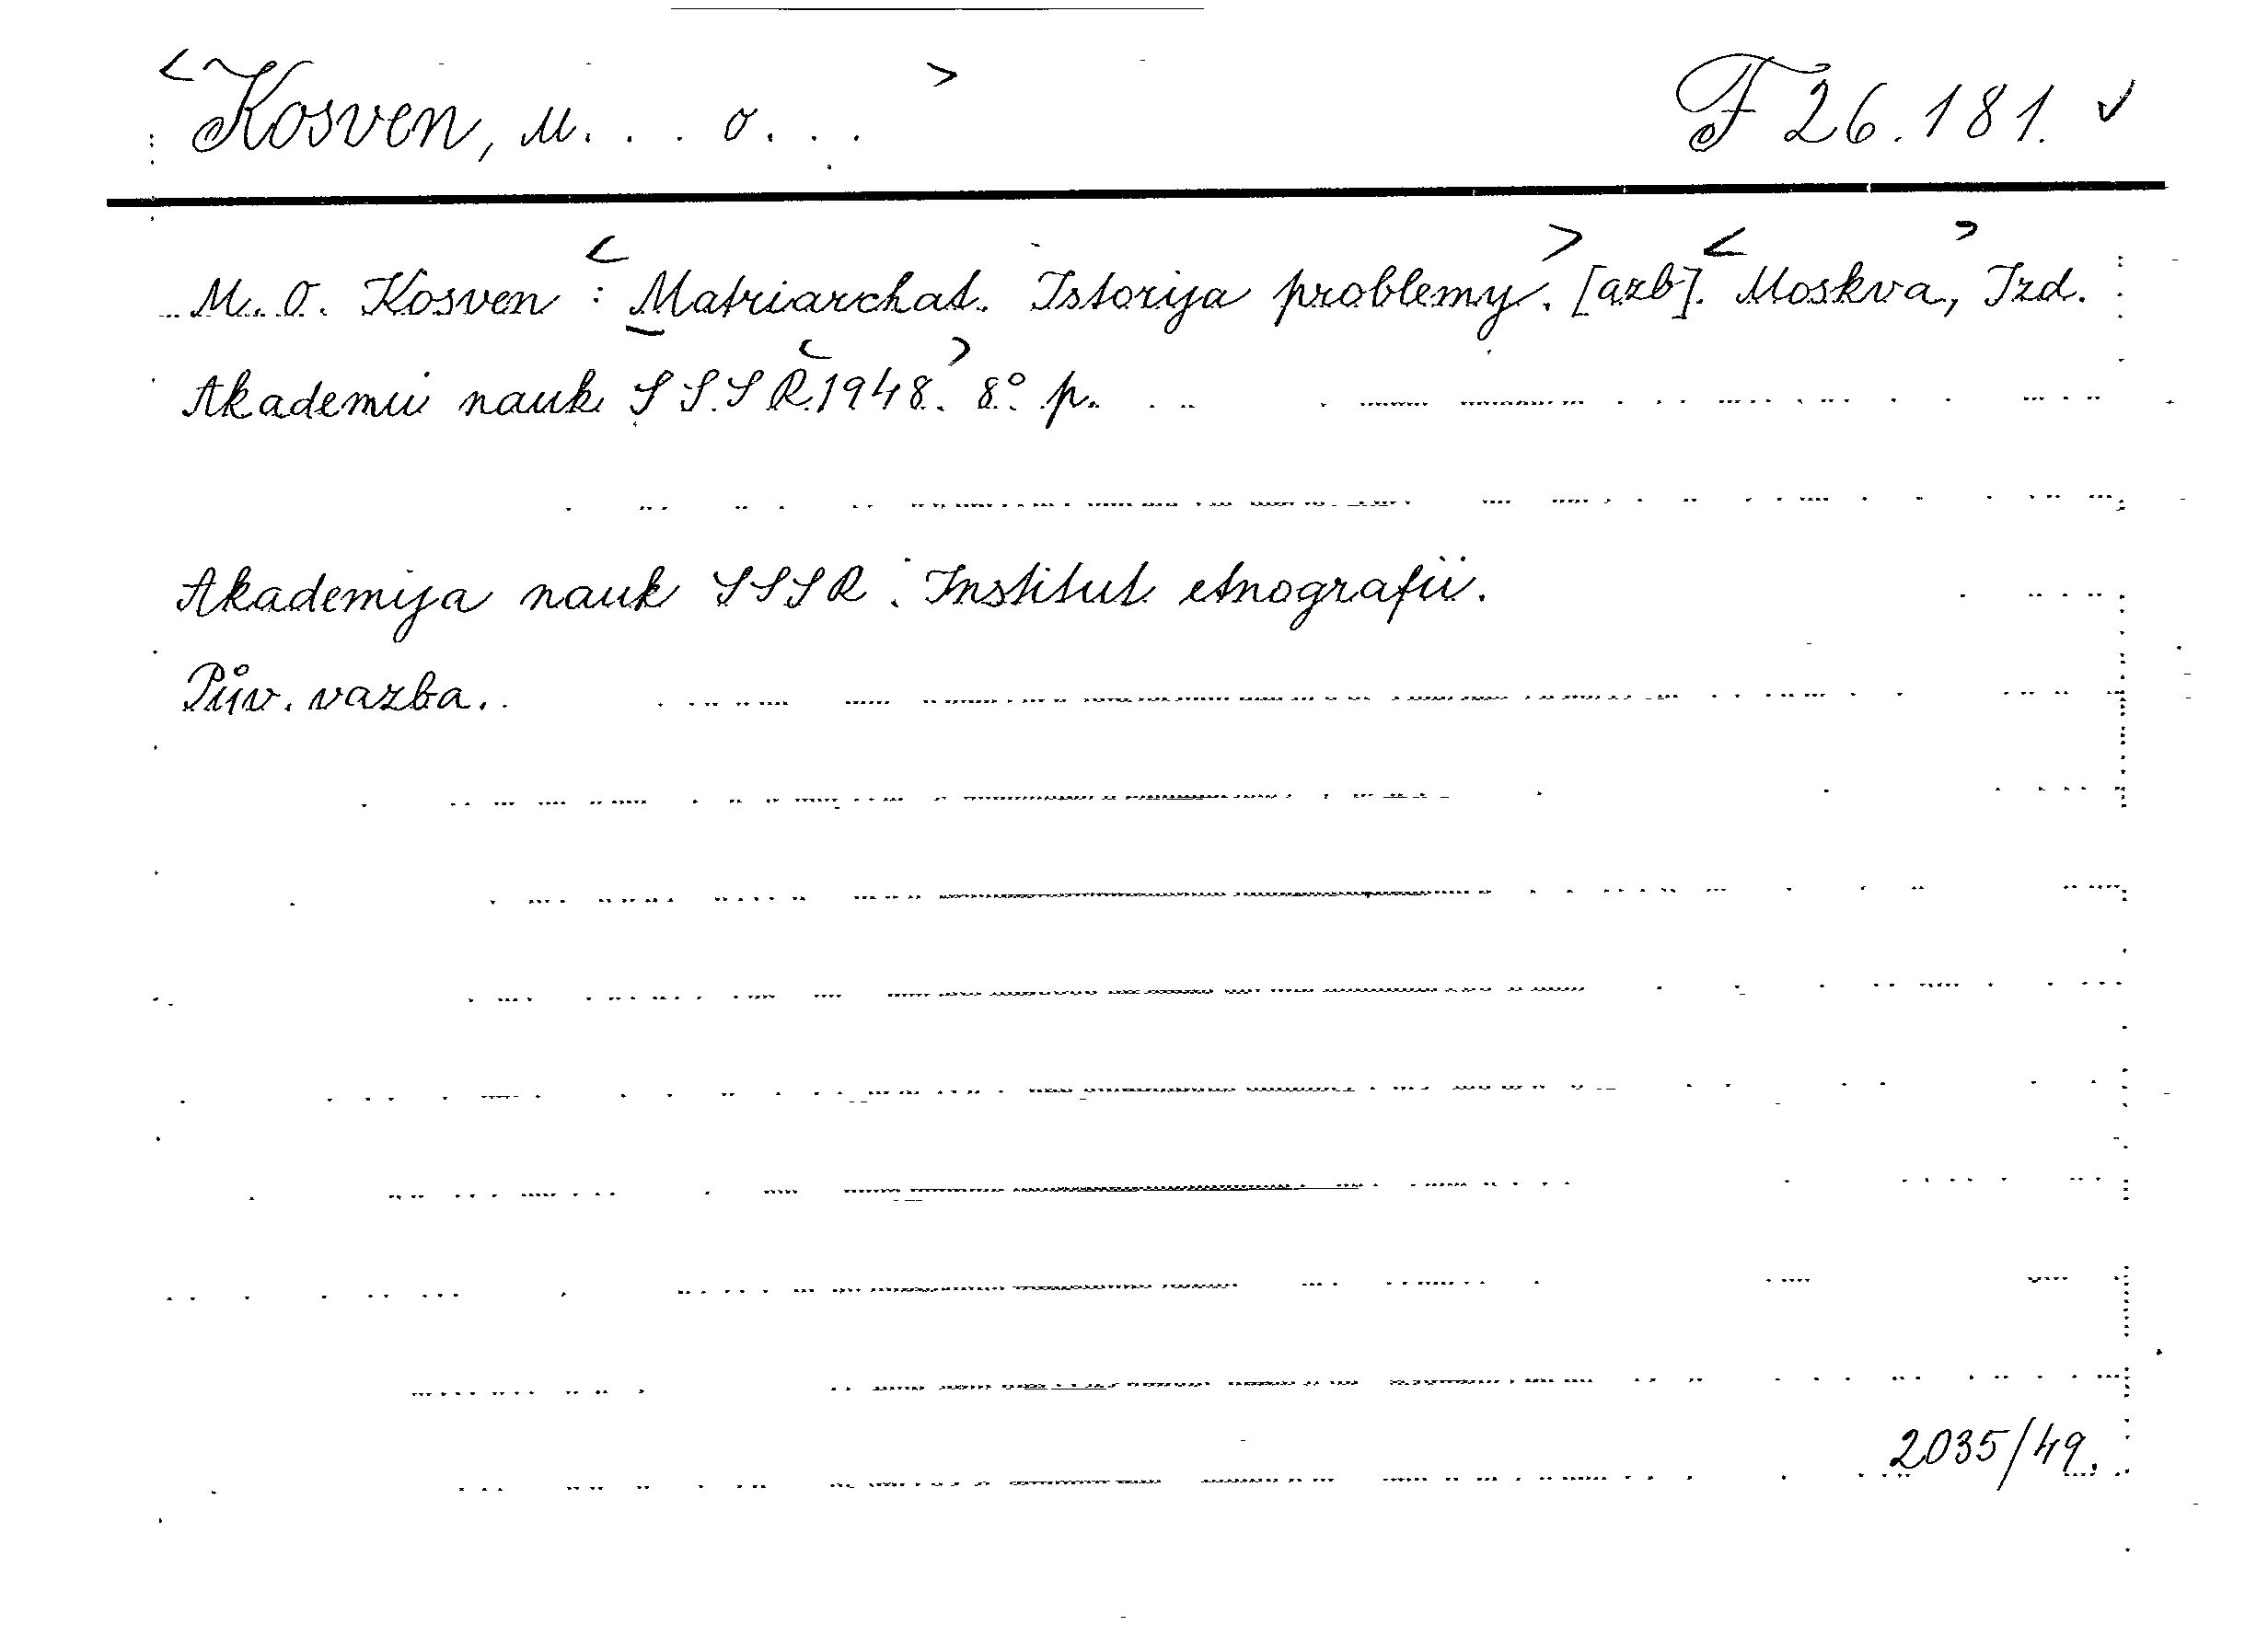 <Kosven, M. . . O. . .> F 26.181. ✓
M. O. Kosven : <Matriarchat. Istorija problemy>. [azb]. <Moskva>, Izd.
Akademii nauk SSSR <1948.> 8° p.
Akademija nauk SSSR. Institut etnografii.
Pův. vazba.
2035/49.